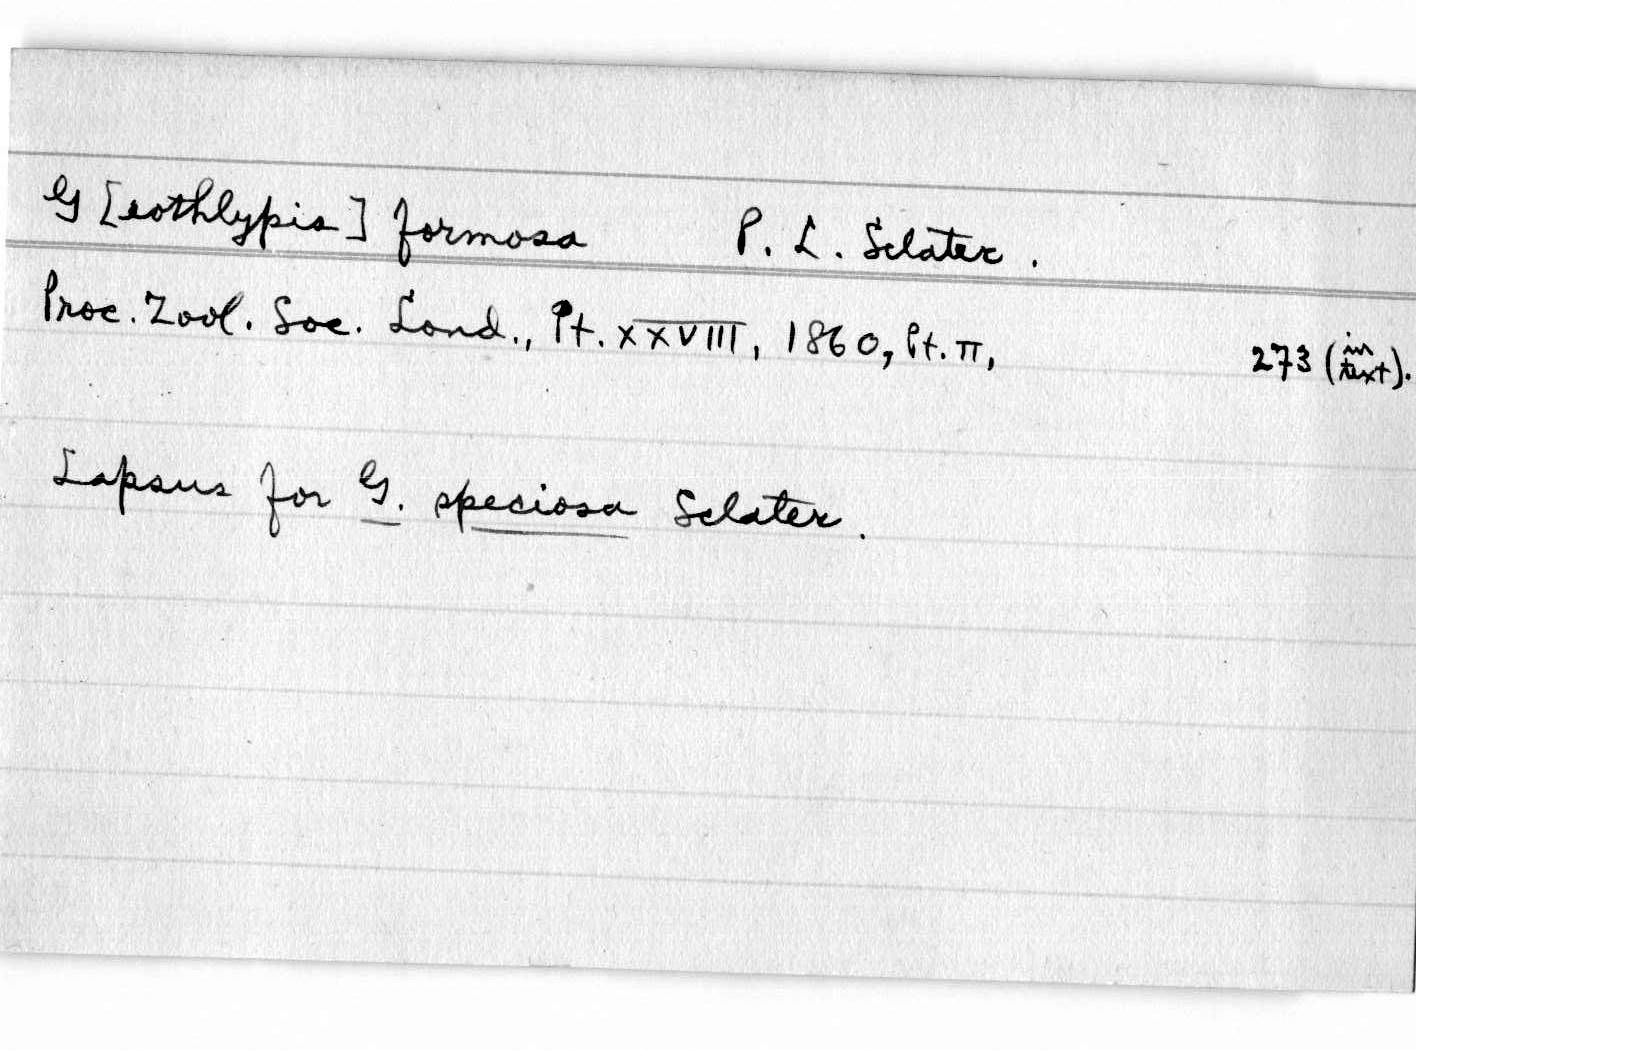 G[eothlypis] formosa P. L. Sclater.
Proc. Zool. Soc. Lond., Pt. XXVIII, 1860, Pt. II, 273 (in text).
Lapsus for G. speciosa Sclater.